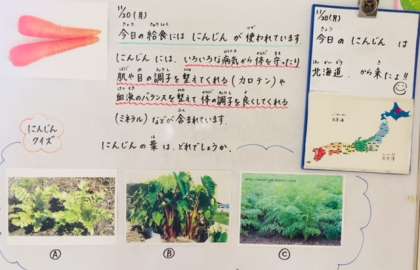 11/20(月)
きょう きゅうしょく つか
今日の給食には にんじんが 使われています。
にんじんには、いろいろな病気から体を守ったり
肌や目の調子を整えてくれる(カロテン)や
血液のバランスを整えて体の調子を良くしてくれる
(ミネラル)などが含まれています。
にんじんの葉は、どれでしょうか。
にんじん
クイズ
Ⓐ
Ⓑ
Ⓒ
11/20(月)
きょう
今日の にんじん は
ほっかいどう
北海道 から来たよ!!
北海道